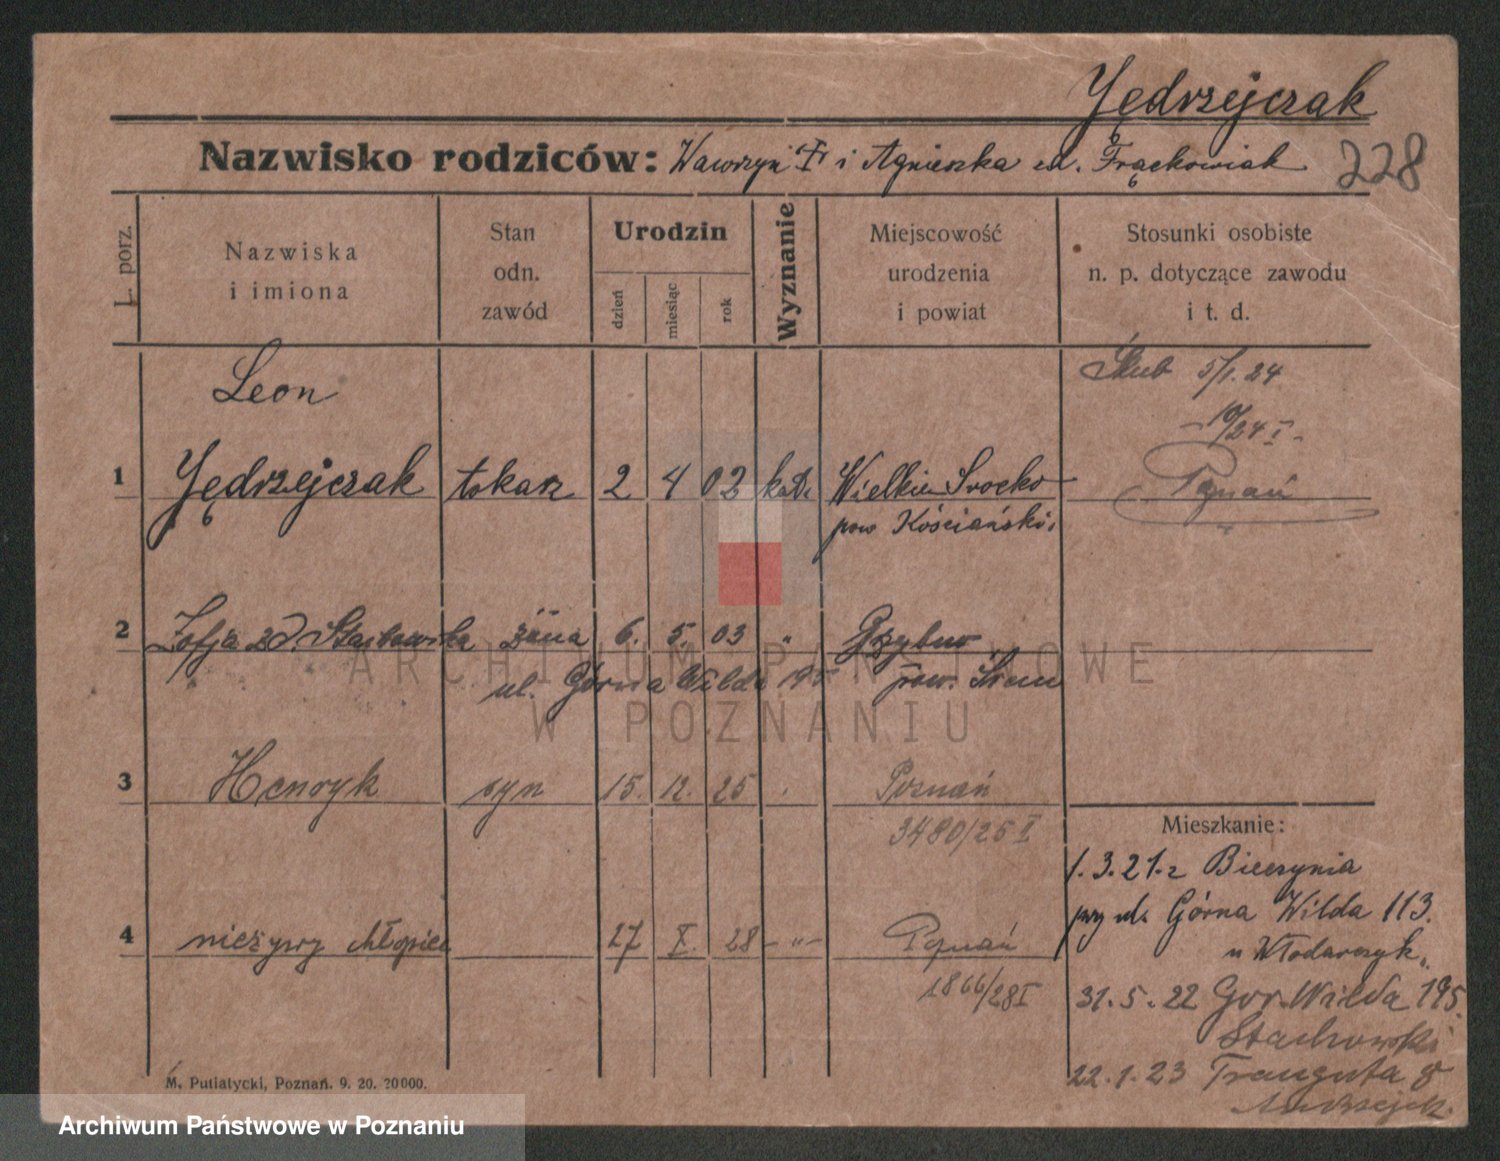 Jędrzejczak
Nazwisko rodziców: Wawrzyn i Agnieszka zd. Frąckowiak
228
L. porz.
Nazwiska
i imiona
Stan
odn.
zawód
Urodzin
dzień
miesiąc
rok
Wyznanie
Miejscowość
urodzenia
i powiat
Stosunki osobiste
n. p. dotyczące zawodu
i t. d.
Leon
Ślub 5/1.24
10/24 I
1 Jędrzejczak tokarz 2 4 02 kat. Wielkie Srocko Poznań
pow Kościański
2 Zofja zd. Stachowska żona 6. 5. 03 " Grzybno
ul. Górna Wilda 195 pow. Śrem
3 Henryk syn 15. 12. 25 Poznań
3480/25 I
Mieszkanie:
1.3.21. z Bieczynia
przy ul. Górna Wilda 113.
u Włodarczyk.
4 nieżywy chłopiec 27 X. 28 -"- Poznań
1866/28 I
31.5.22 Gor. Wilda 195.
Stachowski
22.1.23 Trauguta 8
M. Putiatycki, Poznań. 9. 20. 20000.
ARCHIWUM PAŃSTWOWE
W POZNANIU
Archiwum Państwowe w Poznaniu